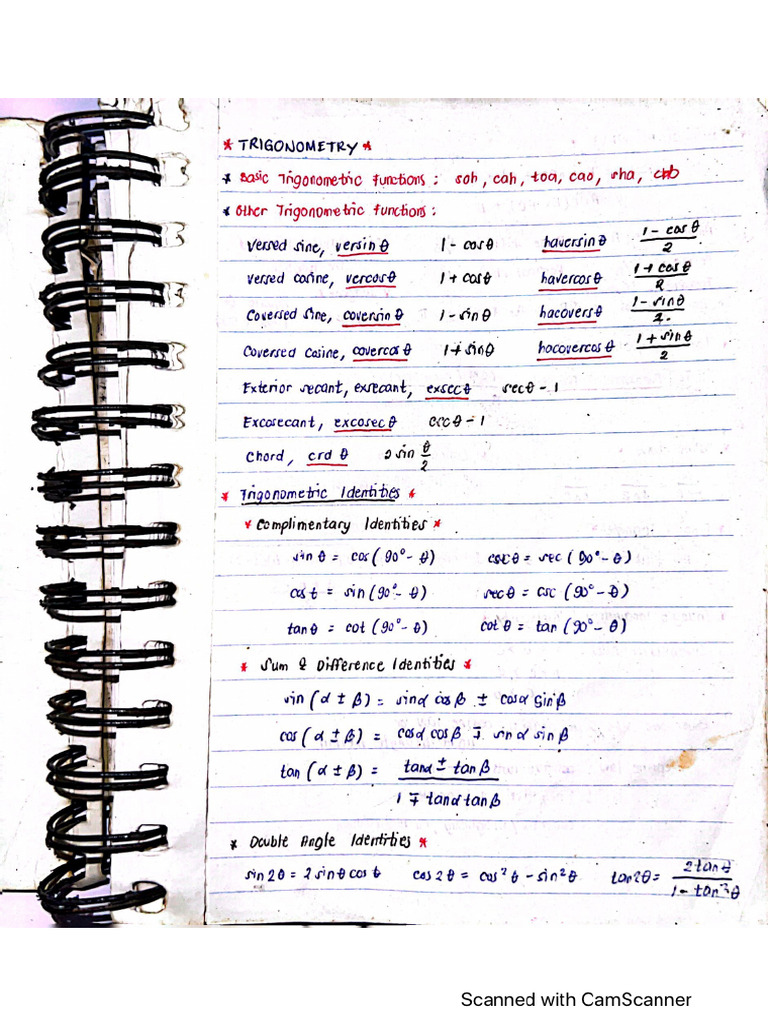 * TRIGONOMETRY *
* Basic Trigonometric Functions : soh, cah, toa, cao, sha, cho
* Other Trigonometric Functions :
Versed sine, versin θ 1 - cosθ haversin θ (1 - cosθ)/2
Versed cosine, vercosθ 1 + cosθ havercosθ (1 + cosθ)/2
Coversed sine, coversin θ 1 - sinθ hacoversθ (1 - sinθ)/2
Coversed cosine, covercosθ 1 + sinθ hacovercosθ (1 + sinθ)/2
Exterior secant, exsecant, exsecθ secθ - 1
Excosecant, excosecθ cscθ - 1
Chord, crd θ 2 sin θ/2
* Trigonometric Identities *
* Complimentary Identities *
sin θ = cos (90° - θ) cscθ = sec (90° - θ)
cos θ = sin (90° - θ) secθ = csc (90° - θ)
tanθ = cot (90° - θ) cot θ = tan (90° - θ)
* Sum & Difference Identities *
sin (α ± β) = sinα cosβ ± cosα sinβ
cos (α ± β) = cosα cosβ ∓ sinα sinβ
tan (α ± β) = (tanα ± tanβ)/(1 ∓ tanα tanβ)
* Double Angle Identities *
sin 2θ = 2 sinθ cos θ cos 2θ = cos² θ - sin² θ tan 2θ = (2 tan θ)/(1 - tan² θ)
Scanned with CamScanner